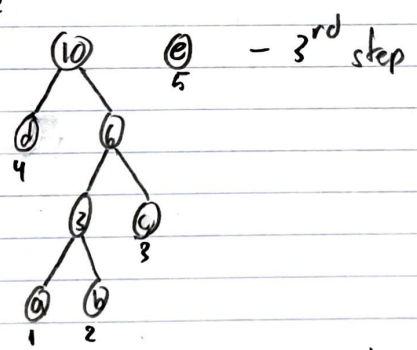 10 e - 3rd step
5
d 6
4
3 c
3
a b
1 2